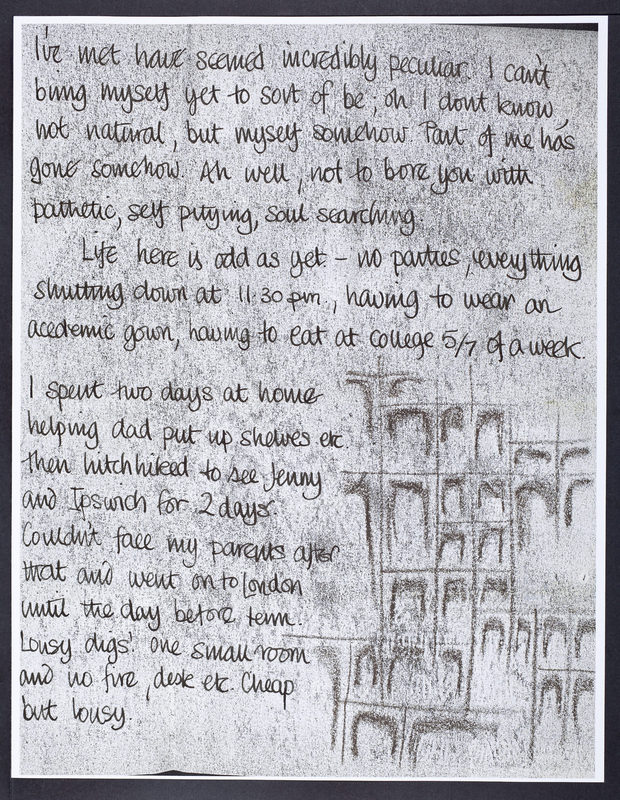 I've met have seemed incredibly peculiar. I can't
bring myself yet to sort of be; oh I dont know,
not natural, but myself somehow. Part of me has
gone somehow. Ah well, not to bore you with
pathetic, self pitying, soul searching.
Life here is odd as yet. - no parties, everything
shutting down at 11.30 pm., having to wear an
acedemic gown, having to eat at college 5/7 of a week.
I spent two days at home
helping dad put up shelves etc.
then hitchhiked to see Jenny
and Ipswich for 2 days.
Couldn't face my parents after
that and went on to London
until the day before term.
Lousy digs! one small room
and no fire, desk etc. Cheap
but lousy.